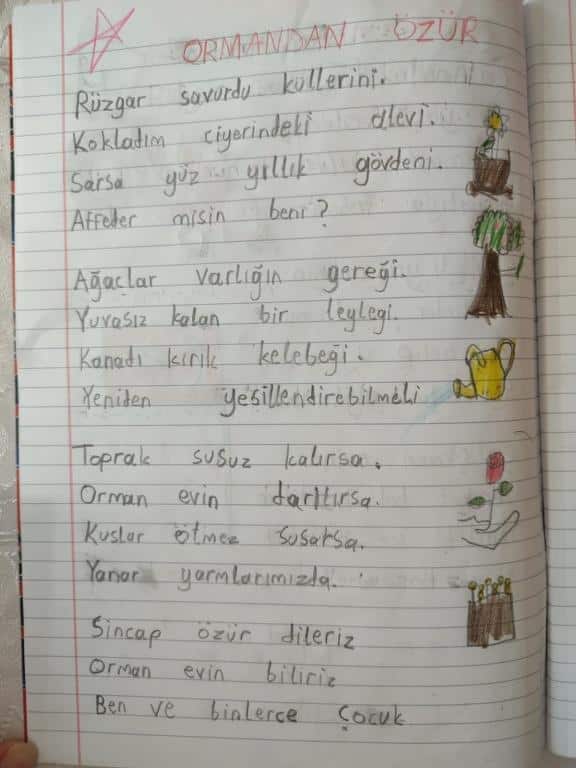 ORMANDAN ÖZÜR
Rüzgar savurdu küllerini.
Kokladım ciyerindeki alevi.
Sarsa yüz yıllık gövdeni.
Affeder misin beni?
Ağaçlar varlığın gereği.
Yuvasız kalan bir leylegi.
Kanadı kırık kelebeği.
Yeniden yeşillendirebilmeli
Toprak susuz kalırsa.
Orman evin darıtırsa.
Kuslar ötmez susarsa.
Yanar yarınlarımızda.
Sincap özür dileriz
Orman evin biliriz
Ben ve binlerce Çocuk